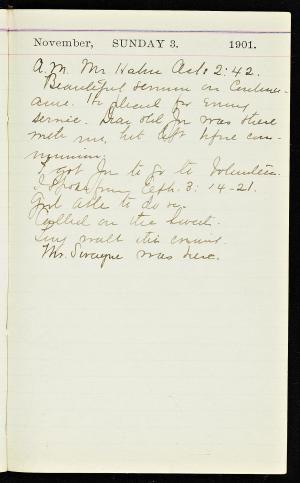 November, SUNDAY 3. 1901.
A.M. Mr Hahn Acts 2:42.
Beautiful sermon on Continu-
ance. He pleaded for Evening
service. Dear old Jn was there
with me, but left before com-
munion.
I got Jn to go to Volunteer.
I spoke from Eph. 3: 14-21.
Just able to do so.
Called on the
walk this evening.
Mr. Swayne was here.